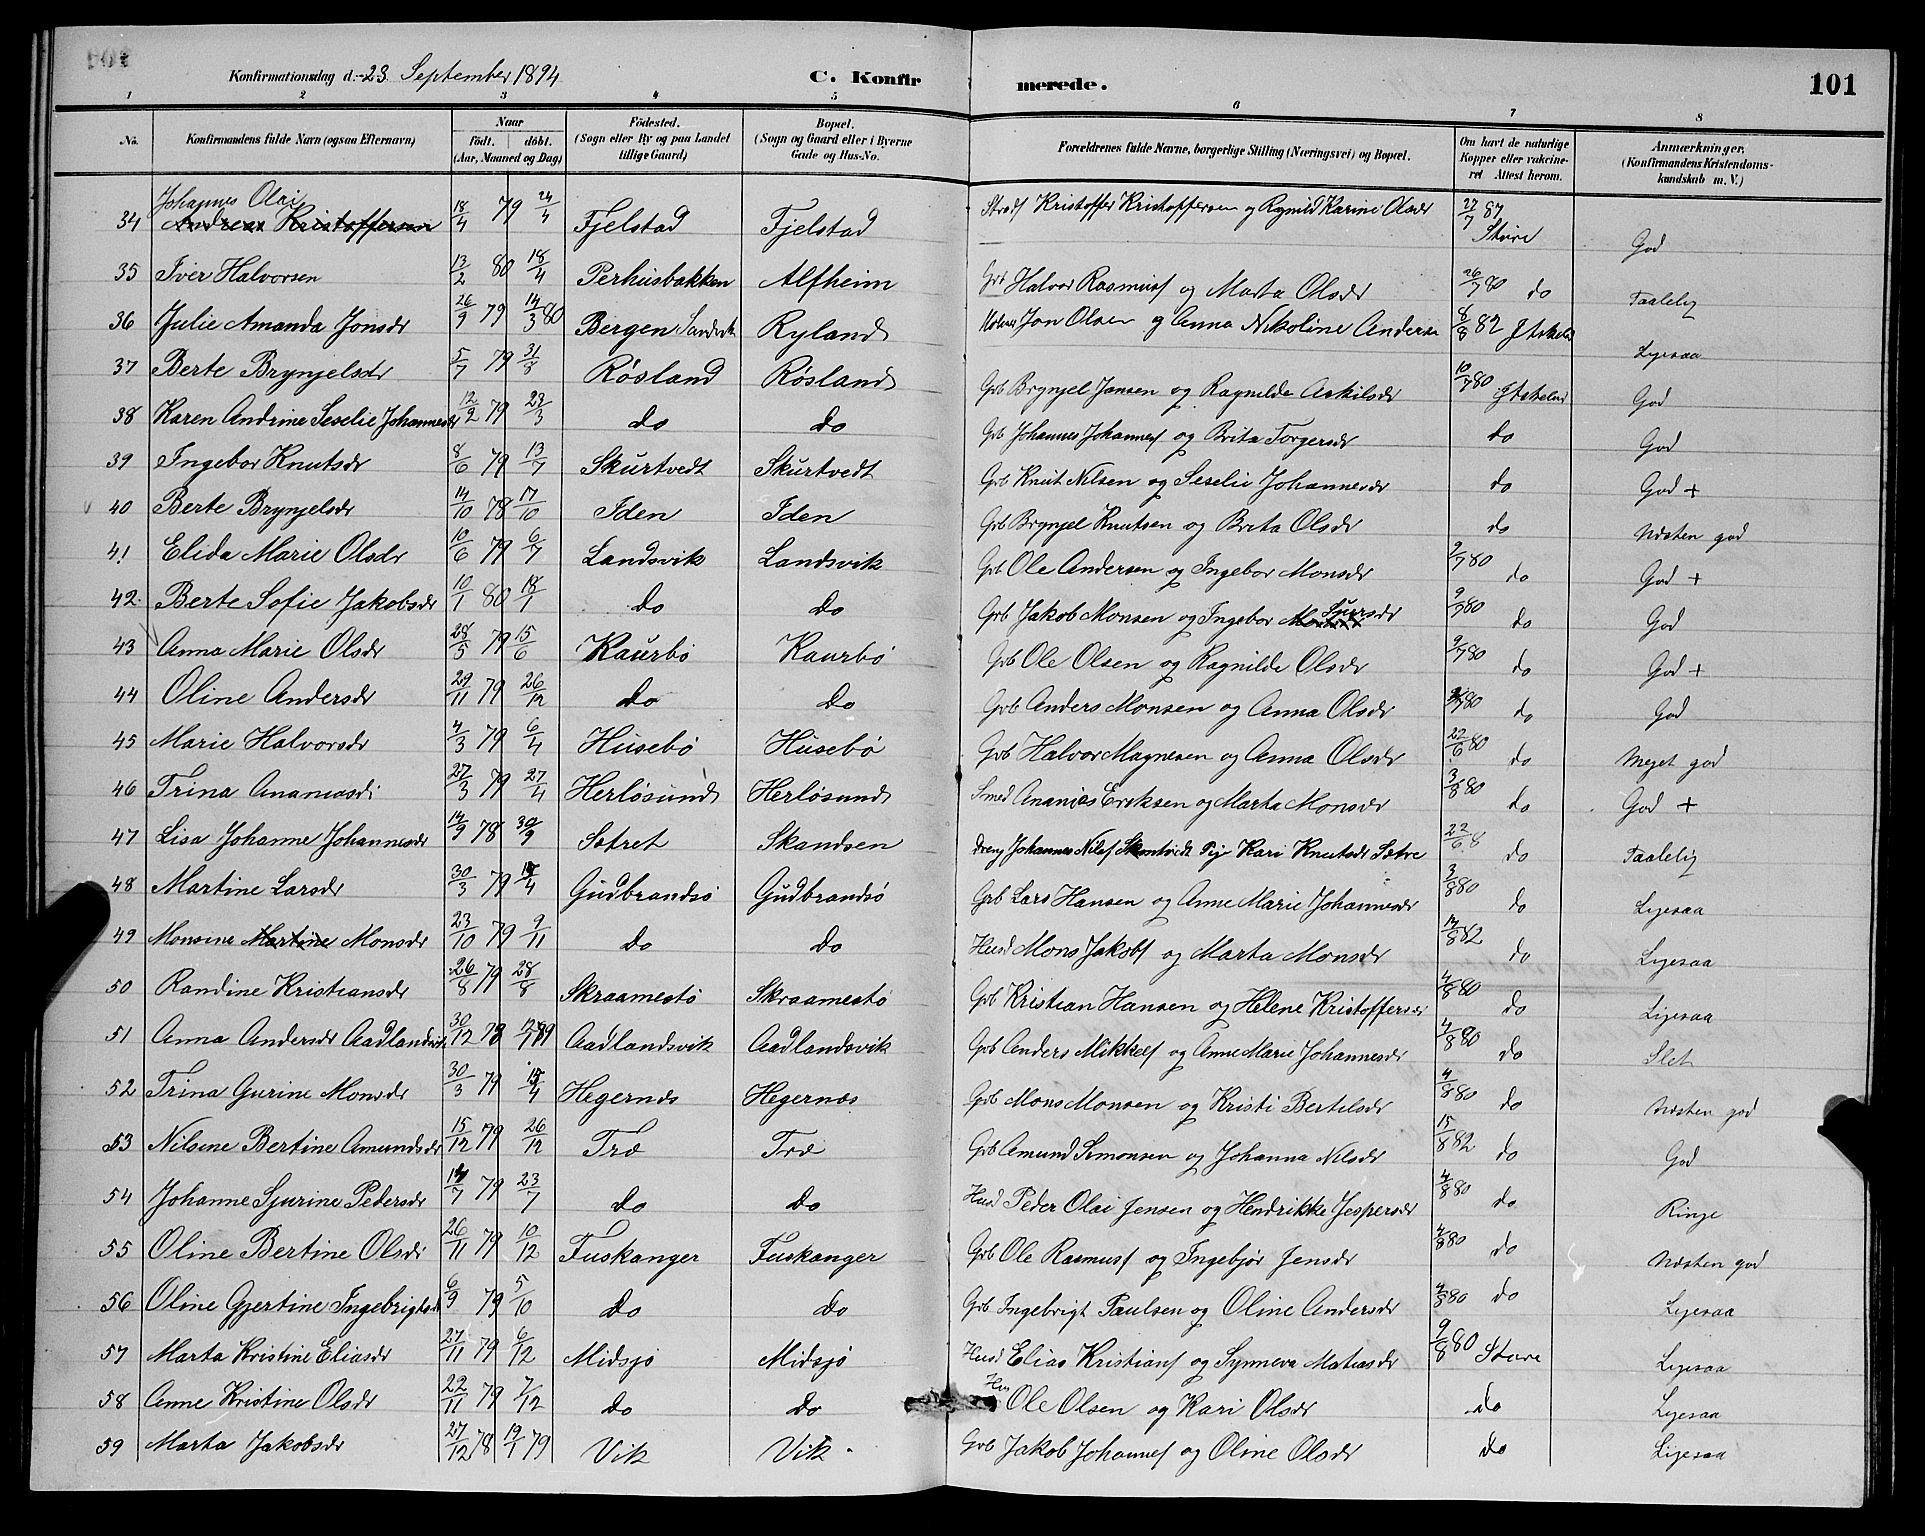 Konfirmationsdag d. 23. September 1894 C. Konfirmerede. 101
1 2 3 4 5 6 7 8
No. Konfirmandens fulde Navn (ogsaa Efternavn) Naar födt. döbt. (Aar, Maaned og Dag) Födested. (Sogn eller By og paa Landet tillige Gaard) Bopæl. (Sogn og Gaard eller i Byerne Gade og Hus-No. Forældrenes fulde Navne, borgerlige Stilling (Næringsvei) og Bopæl. Om havt de naturlige Kopper eller vakcineret Attest herom. Anmærkninger. (Konfirmandens Kristendomskundskab m. V.)
Johannes Olai
34 Andreas Kristoffersen 18/4 79 24/4 Fjelstad Fjelstad Kristoffer Kristoffersen og Ragnild Karine Olsdr 27/7 87 Støre God
35 Iver Halvorsen 13/2 80 18/4 Perhusbakken Alfheim Halvor Rasmus og Marta Olsdr 26/7 80 do Taalelig
36 Julie Amanda Jonsdr 26/9 79 14/3 80 Bergen Sandvik Ryland Jon Olsen og Anna Nikoline Anderse 8/8 82 Lyesaa
37 Berte Brynjelsdr 5/7 79 31/8 Røsland Røsland Grb Brynjel Jansen og Ragnilde Askilsdr 10/7 80 God
38 Karen Andrine Seselie Johannesdr 12/2 79 23/3 do do Grb Johannes Johannes og Brita Torgersdr do God
39 Ingebor Knutsdr 8/6 79 13/7 Skurtvedt Skurtvedt Grb Knut Nilsen og Seselie Johannesdr do God +
40 Berte Brynjelsdr 14/10 78 17/10 Iden Iden Grb Brynjel Knutsen og Brita Olsdr do Næsten god
41 Elida Marie Olsdr 10/6 79 6/7 Landsvik Landsvik Grb Ole Andersen og Ingebor Monsdr 9/7 80 do God +
42. Berte Sofie Jakobsdr 10/1 80 18/1 do do Grb Jakob Monsen og Ingebor Sjursdr 9/7 80 do God
43 Anna Marie Olsdr 28/5 79 15/6 Kaurbø Kaurbø Grb Ole Olsen og Ragnilde Olsdr 9/7 80 do God +
44 Oline Andersdr 29/11 79 26/12 do do Grb Anders Monsen og Anna Olsdr 80 do God
45 Marie Halvorsdr 4/3 79 6/4 Husebø Husebø Grb Halvor Magnesen og Anna Olsdr 22/6 80 do Meget god
46 Trina Ananiasdr 27/3 79 27/4 Herløsund Herløsund Smed Ananias Eriksen og Marta Monsdr 3/8 80 do God +
47 Lisa Johanne Johannesdr 14/9 78 30/9 Sætret Skandsen dreng Johannes Nils Skurtvedt Pig Kari Knutsdr Sætre 22/6 8 do Taalelig
48 Martine Larsdr 30/3 79 /4 Gudbrandsø Gudbrandsø Grb Lars Hansen og Anne Marie Johannesdr 3/8 80 do Lyesaa
49 Monsine Martine Monsdr 23/10 79 9/11 do do Husd Mons Jakobs og Marta Monsdr 14/8 82 do Lyesaa
50 Randine Kristiansdr 26/8 79 28/8 Skraamestø Skraamestø Grb Kristian Hansen og Helene Kristoffersdr 4/8 80 do Ligesaa
51 Anna Andersdr Aadlandsvik 30/12 78 12/1 79 Aadlandsvik Aadlandsvik Grb Anders Mikkels og Anne Marie Johannesdr 4/8 80 do Slet
52 Trina Gurine Monsdr 30/3 79 15/4 Hegernæs Hegernæs Grb Mons Monsen og Kristi Bertelsdr 4/8 80 do Næsten god
53 Nilsine Bertine Amundsdr 15/12 79 26/12 Træ Træ Grb Amund Simonsen og Johanna Nilsdr 15/8 82 do God
54 Johanne Sjurine Pedersdr 14/7 79 23/7 do do Husd Peder Olai Jensen og Hendrikke Jespersdr 4/8 80 do Ringe
55 Oline Bertine Olsdr 26/11 79 10/12 Fuskanger Fuskanger Grb Ole Rasmus og Ingebjør Jensdr 4/8 80 do Næsten god
56 Oline Gjertine Ingebrigtsdr 6/9 79 5/10 do do Grb Ingebrigt Paulsen og Oline Andersdr 4/8 80 do Lyesaa
57 Marta Kristine Eliasdr 27/11 79 6/12 Midsjø Midsjø Husd Elias Kristians og Synneva Matiasdr 9/8 80 Støre Lyesaa
58 Anne Kristine Olsdr 22/11 79 7/12 do do Hus Ole Olsen og Kari Olsdr do Lyesaa
59 Marta Jakobsdr 27/12 78 19/1 79 Vik Vik Grb Jakob Johannes og Oline Olsdr do Ligesaa